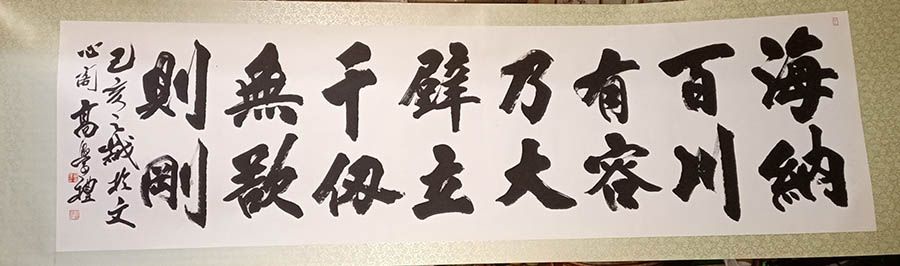 海納
百川
有容
乃大
壁立
千仞
無欲
則剛
己亥之歲於文
心閣高